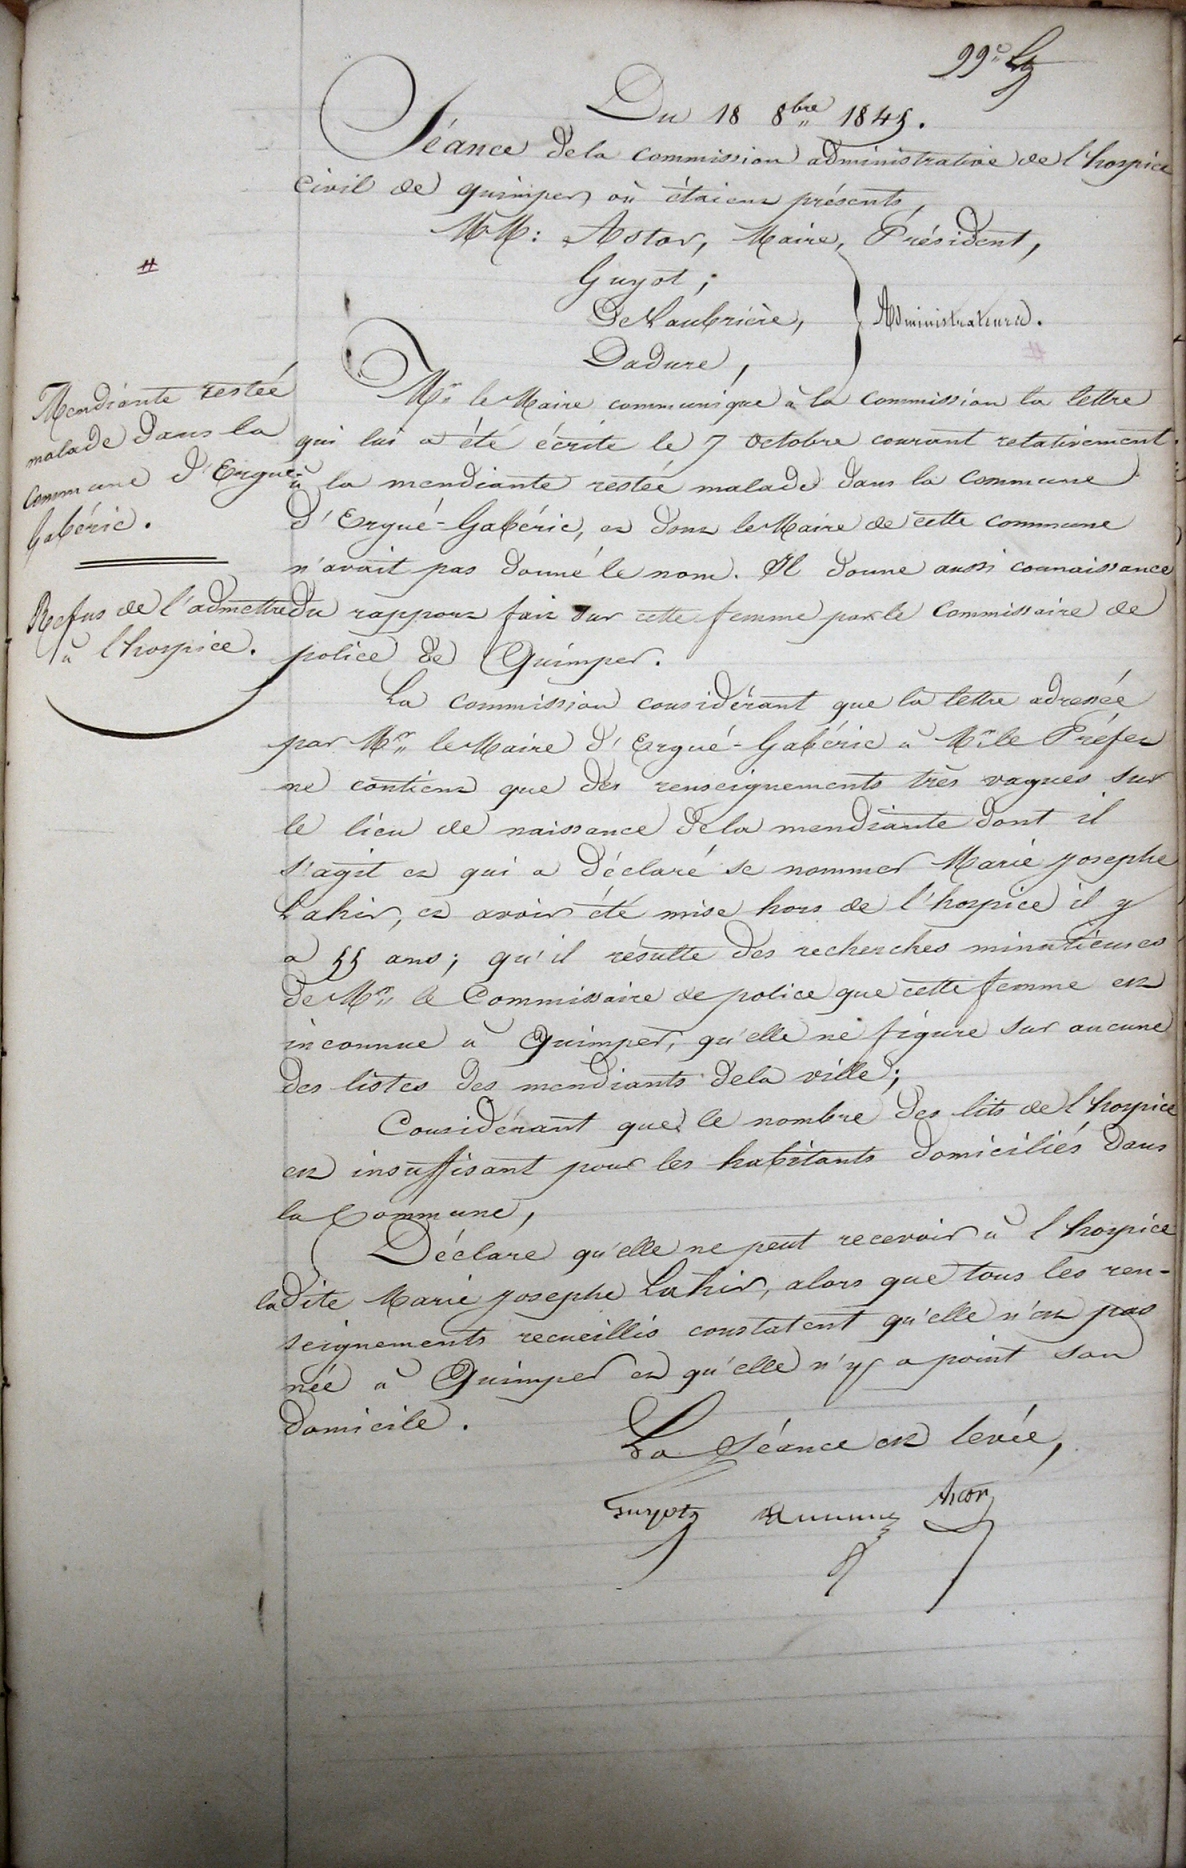 99e
Du 18 8bre 1845.
Séance de la commission administrative de l'hospice
civil de quimper, où étaient présents,
MM: Astor, Maire, Président,
Guyot;
De Laubrière,
Administrateurs.
Dadure,
Mendiante restée
malade dans la
commune d'Ergué-
Gabéric.
Refus de l'admettre
à l'hospice.
Mr le Maire communique à la commission la lettre
qui lui a été écrite le 7 octobre courant relativement
à la mendiante restée malade dans la commune
d'Ergué-Gabéric, et dont le Maire de cette commune
n'avait pas donné le nom. Il donne aussi connaissance
du rapport fait sur cette femme par le Commissaire de
police de Quimper.
La commission considérant que la lettre adressée
par Mr le Maire d'Ergué-Gabéric à Mr le Préfet
ne contient que des renseignements très vagues sur
le lieu de naissance de la mendiante dont il
s'agit et qui a déclaré se nommer Marie josephe
Lahir, et avoir été mise hors de l'hospice il y
a 55 ans; qu'il résulte des recherches minutieuses
de Mr le Commissaire de police que cette femme est
inconnue à Quimper, qu'elle ne figure sur aucune
des listes des mendiants de la ville;
Considérant que le nombre des lits de l'hospice
est insuffisant pour les habitants domiciliés dans
la Commune,
Déclare qu'elle ne peut recevoir à l'hospice
ladite Marie josephe Lahir, alors que tous les ren-
seignements recueillis constatent qu'elle n'est pas
née à Quimper et qu'elle n'y a point son
domicile.
La Séance est levée,
Guyot Astor